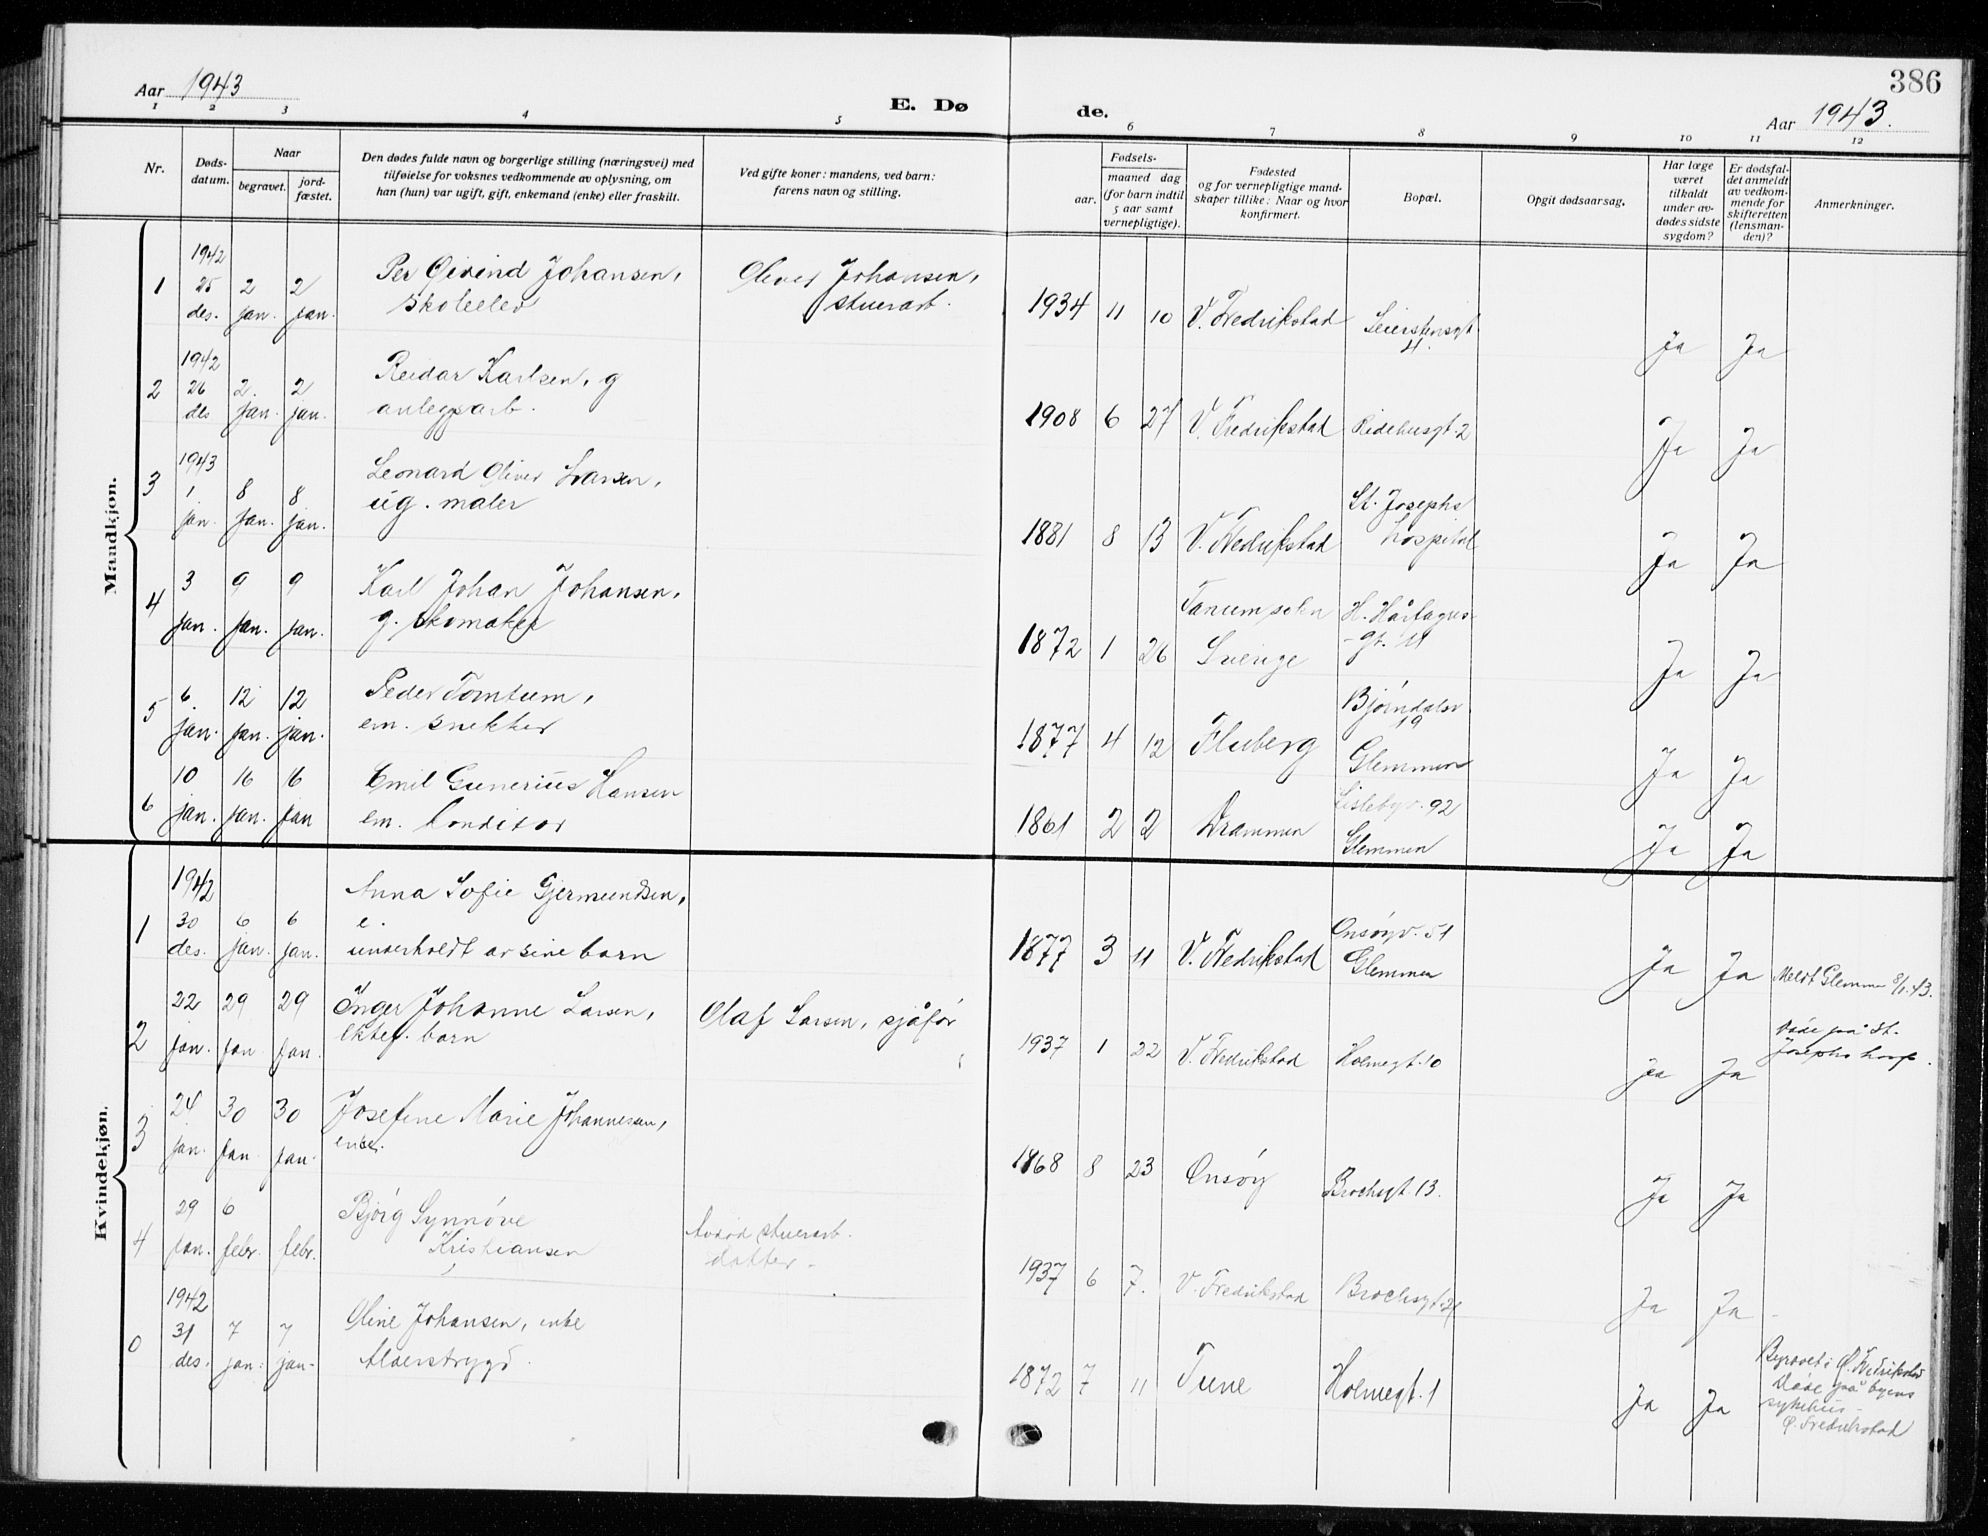 386
Aar 1943
E. Dø
de.
Aar 1943.
1 2 3 4 5 6 7 8 9 10 11 12
Nr.
Døds-
datum.
Naar
begravet.
jord-
fæstet.
Den dødes fulde navn og borgerlige stilling (næringsvei) med
tilføielse for voksnes vedkommende av oplysning, om
han (hun) var ugift, gift, enkemand (enke) eller fraskilt.
Ved gifte koner: mandens, ved barn:
farens navn og stilling.
Fødsels-
aar.
maaned dag
(for barn indtil
5 aar samt
vernepligtige).
Fødested
og for vernepligtige mand-
skaper tillike: Naar og hvor
konfirmert.
Bopæl.
Opgit dødsaarsag.
Har læge
været
tilkaldt
under av-
dødes sidste
sygdom?
Er dødsfal-
det anmeldt
av vedkom-
mende for
skifteretten
(lensman-
den)?
Anmerkninger.
Mandkjøn.
1942
1 25 des. 2 jan. 2 jan. Per Øivind Johansen, Oliver Johansen, 1934 11 10 V. Fredrikstad Leiestensgt. Ja Ja
skoleelev stuerarb. 4.
1942
2 26 des 2. jan. 2 jan. Reidar Karlsen, g 1908 6 27 V. Fredrikstad Ridehusgt. 2 Ja Ja
anlegsarb.
1943
3 1 jan. 8 jan. 8 jan. Leonard Oliver Larsen, 1881 8 13 V. Fredrikstad St. Josephs Ja Ja
ug. maler hospital
4 3 jan. 9 jan. 9 jan. Karl Johan Johansen, 1872 1 26 Tanum sokn Ja Ja
g. skomaker Sverige gt. 11
5 6 jan. 12 jan. 12 jan. Peder Tomtum, 1877 4 12 Fluberg Bjørndalsv. Ja Ja
em. snekker 19
Glemmen
6 10 jan. 16 jan. 16 jan Emil Gunerius Hansen 1861 2 2 Drammen Lislebyv. 92 Ja Ja
em. konditor Glemmen
Kvindekjøn.
1942
1 30 des. 6 jan. 6 jan. Anna Sofie Gjermundsen, 1877 3 11 V. Fredrikstad Onsøyv. 51 Ja Ja Meldt Glemmen 8/1.43.
e. Glemmen
underholdt av sine barn
2 22 jan. 29 jan 29 jan. Inger Johanne Larsen, Olaf Larsen, sjåfør 1937 1 22 V. Fredrikstad Holmegt. 10 Ja Ja Døde paa St.
ektef. barn Josephs hosp.
3 24 jan. 30 jan 30 jan. Josefine Marie Johannessen, 1868 8 23 Onsøy Brochsgt. 13. Ja Ja
enke.
4 29 jan. 6 febr. febr. Bjørg Synnøve stuerarb. 1937 6 7. V. Fredrikstad Brochsgt. Ja Ja
Kristiansen datter
1942
0 31 des. 7 jan. 7 jan Oline Johansen, enke 1872 7 11 Tune Holmegt. 1 Ja Ja Begravet i Ø. Fredrikstad
Alderstrygd. Døde paa byens
sykehus
Ø. Fredrikstad